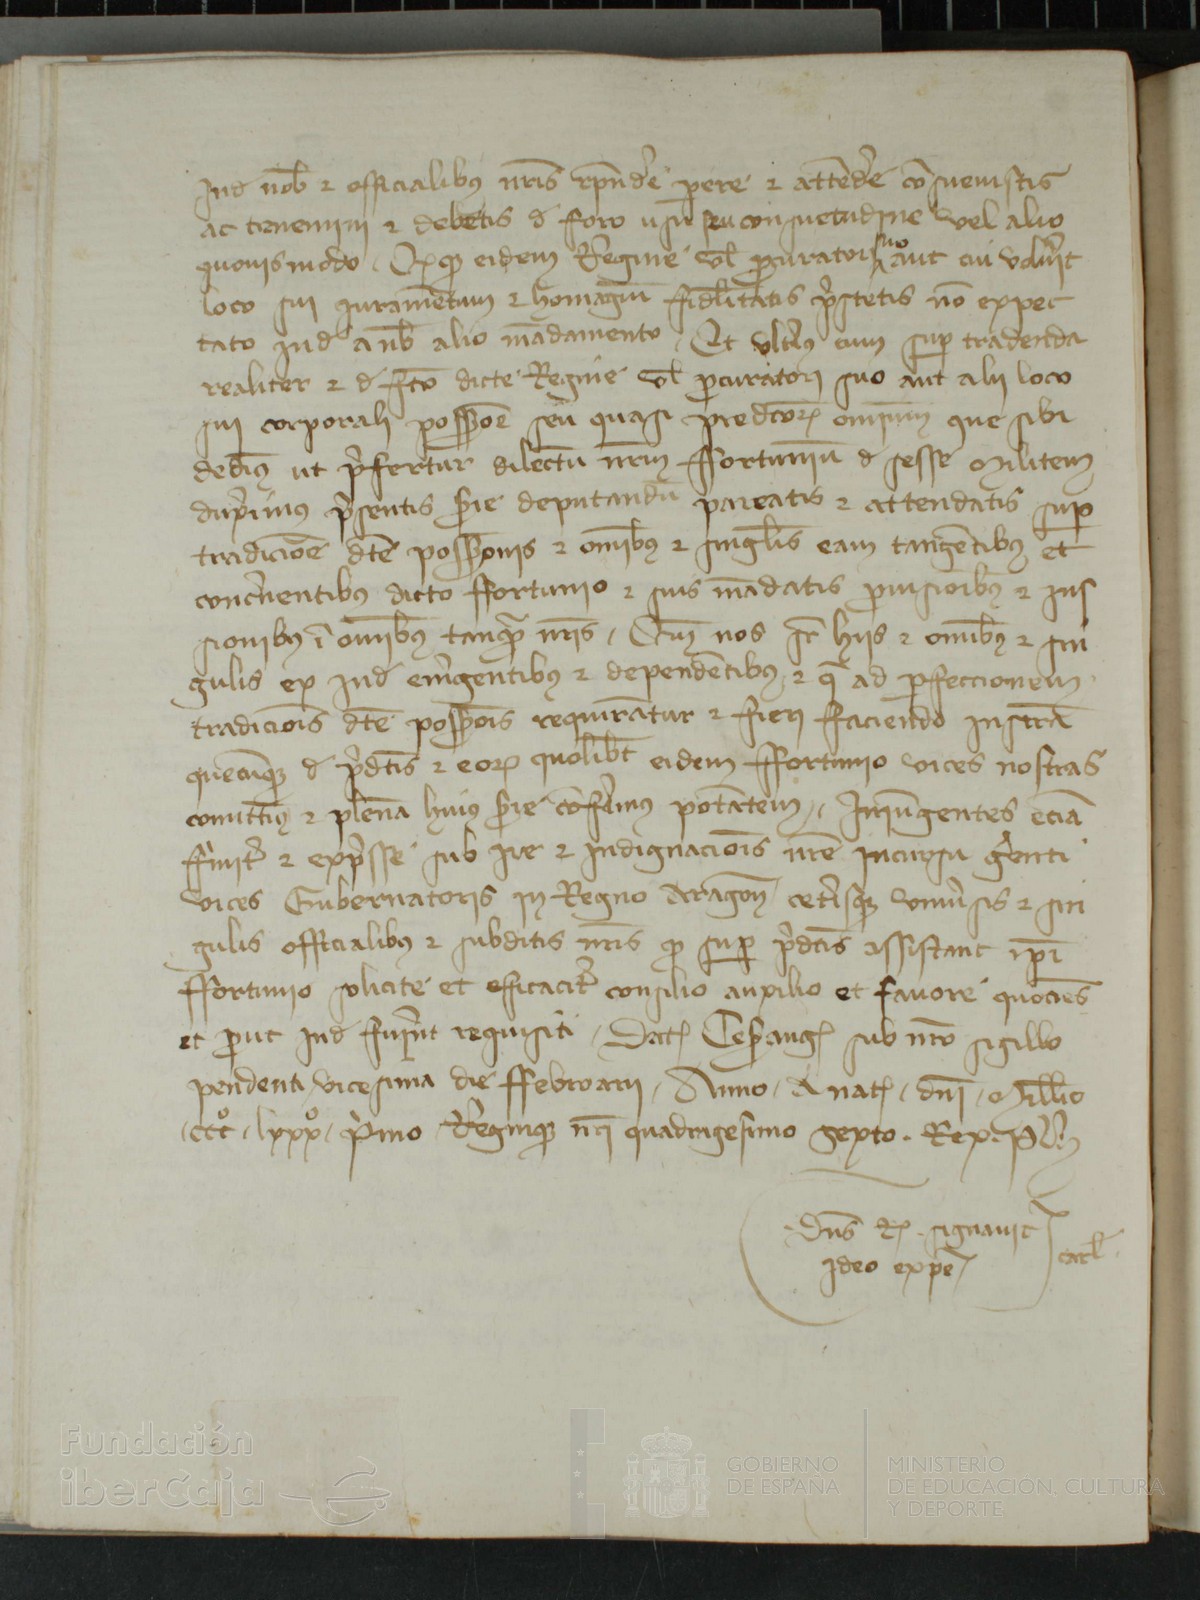 Ind nob & officialibus nris rpndere pere & attendere consuevistis
ac tenemini & debetis d foro usu seu consuetudine vel alio
quovismodo. Qq eidem Regine vl procuratori suo aut cui voluerit
loco sui iuramentum & homagium ffidelitatis prestetis non expec
tato ind a nob alio mandamento. Et ultius cum super tradenda
realiter & d fco dicte Regine vl procuratori suo aut alii loco
sui corporali possione seu quasi predcor omnium que sibi
dedimus ut prefertur dilectum nrm ffortunium d sesse militem
duximus presentis serie deputandum pareatis & attendatis super
tradicione dte possionis & omibus & singlis eam tangentibus et
concernentibus dicto ffortunio & suis mandatis provisionibus & ius
sionibus i omibus tanqm nris. Cum nos sr hiis & omibus & sin
gulis ex ind emergentibus & dependentibus & q ad perfeccionem
tradicionis dte possionis requirantur & fieri ffaciendo instra
quecumq d predctis & eor quolibet eidem ffortunio vices nostras
comittimus & plenam huius serie conferimus potatem. Iniungentes eciam
firmiter & expresse sub ire & indignacionis nre incursu gerenti
vices Gubernatoris in Regno Aragon ceterisq universis & sin
gulis officialibus & subditis nris q super predctis assistant ipi
ffortunio solicite et efficaciter consilio auxilio et favore quociens
et prout ind fuerint requisiti. Dat Cesarang sub nro sigillo
pendenti vicesima die ffebroarii. Anno. A nat. dni. Millio
.CCC.º lxxxº. primo Regniq nri quadragesimo sexto. Rex. P
Dns Rex signavit
ideo expe